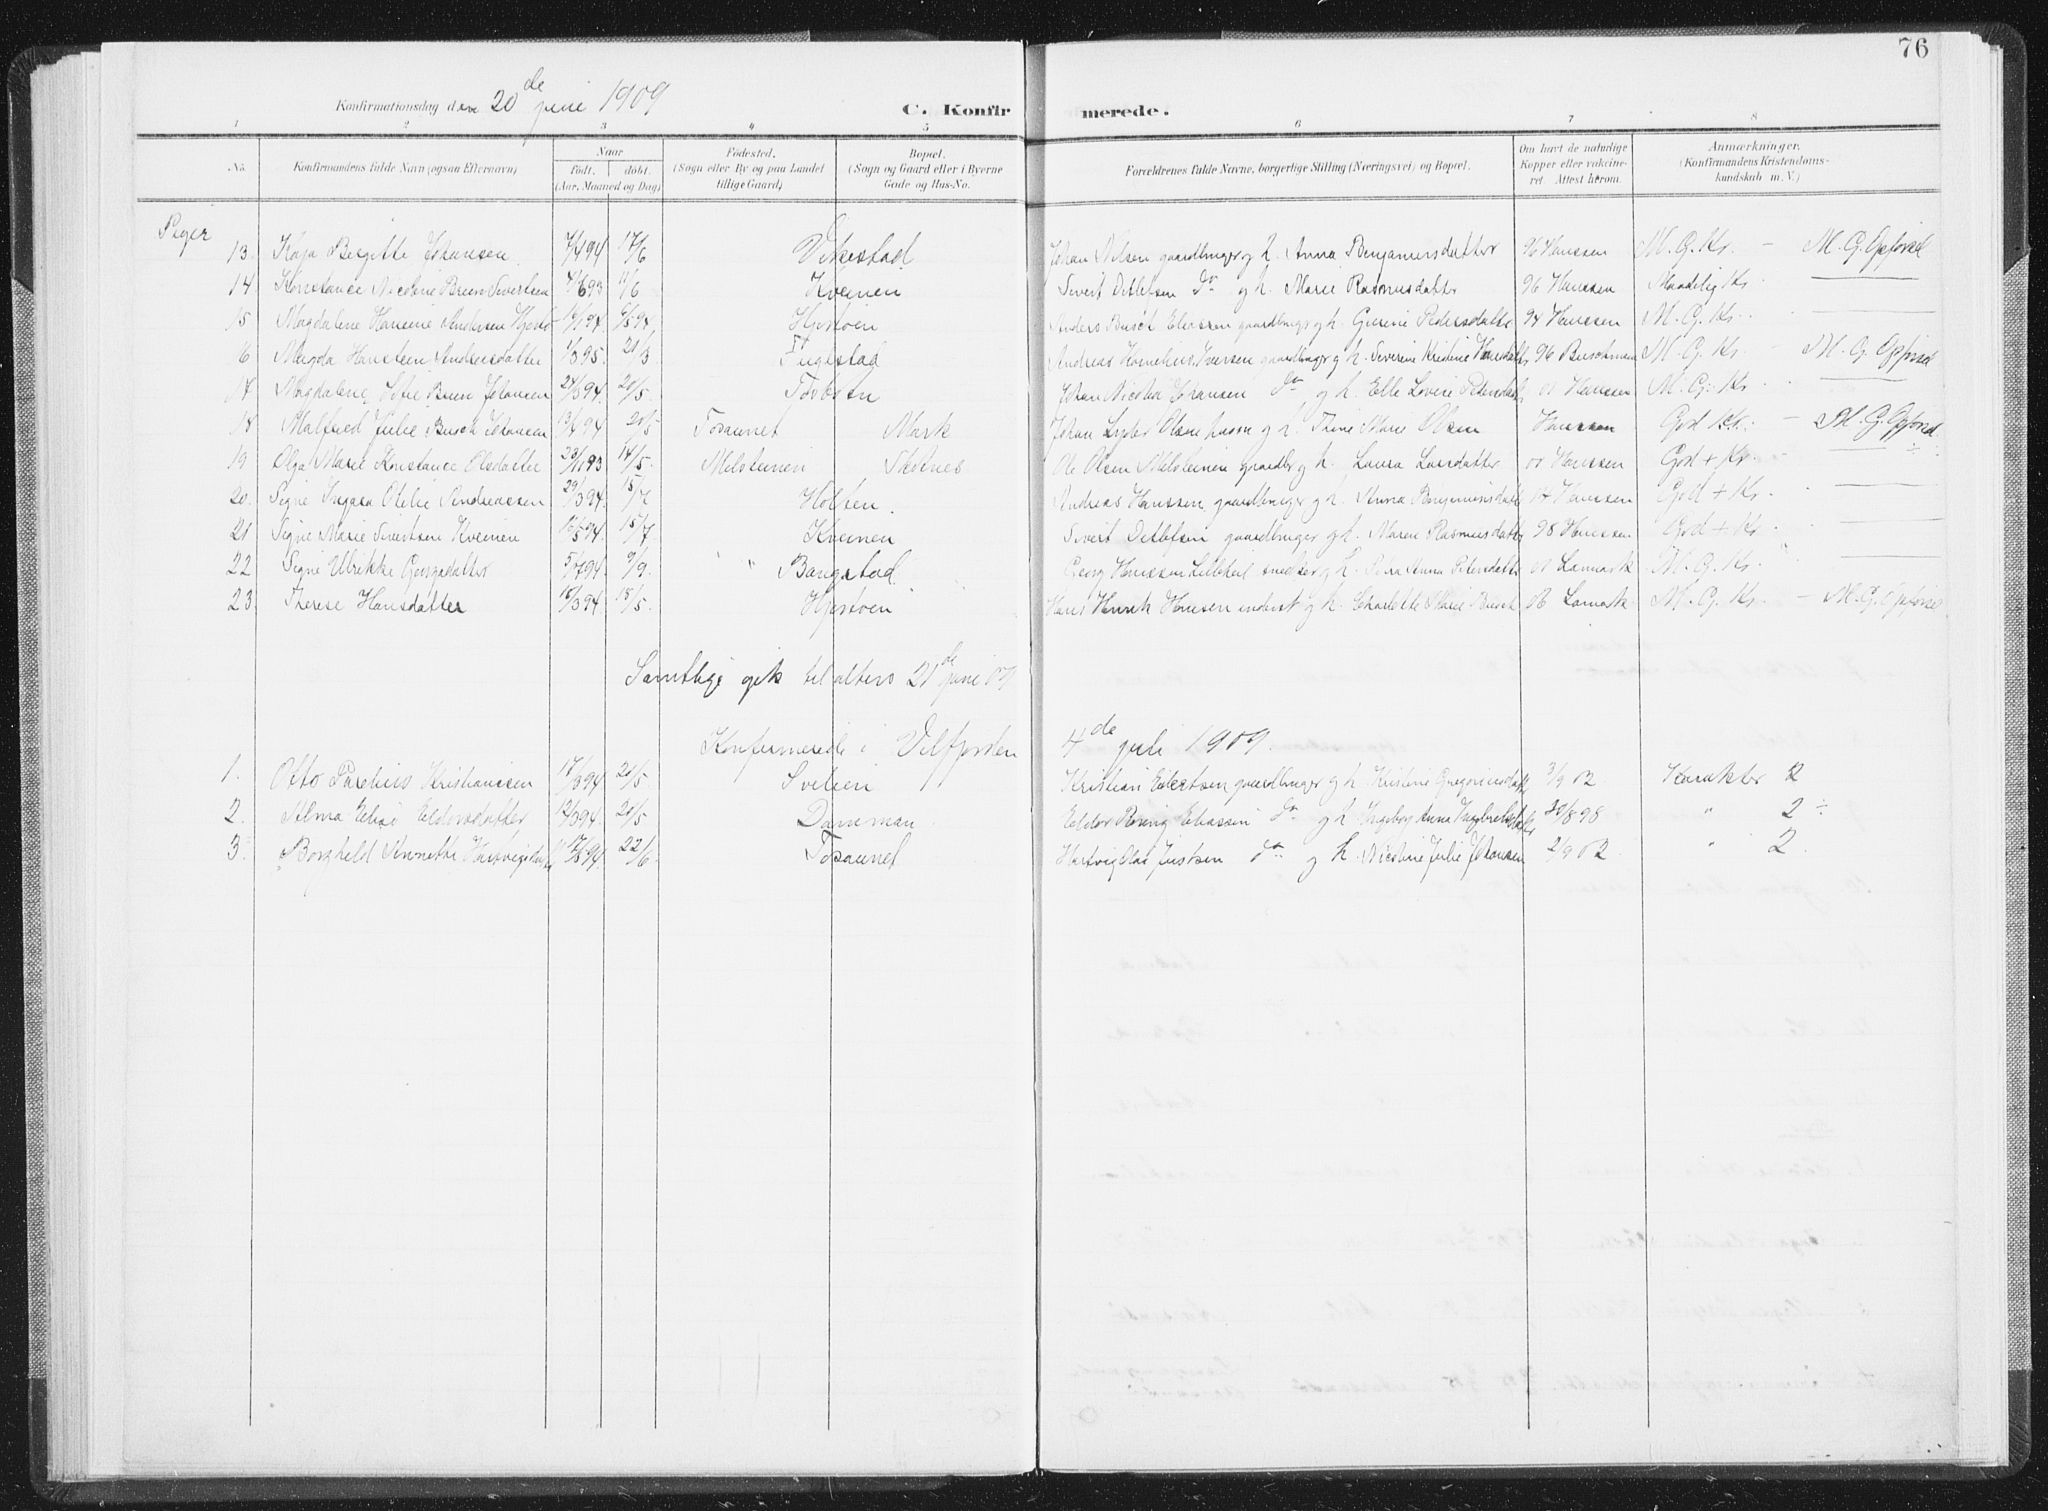 76
Konfirmationsdag den 20de juni 1909
C. Konfirmerede.
1 2 3 4 5 6 7 8
No. Konfirmandens fulde Navn (ogsaa Efternavn) Naar født. døbt. (Aar, Maaned og Dag) Fødested. (Sogn eller By og paa Landet tillige Gaard) Bopæl. (Sogn og Gaard eller i Byerne Gade og Hus-No. Forældrenes fulde Navne, borgerlige Stilling (Næringsvei) og Bopæl. Om havt de naturlige Kopper eller vaccineret. Attest herom. Anmærkninger. (Konfirmandens Kristendomskundskab m. V.)
Piger
13. Kaja Birgitte Johansen 7/4 94 17/6 Vikestad Johan Nilsen gaardbruger g h. Anna Benjaminsdatter 96 Hanssen M. G. Kr. – M. G. Opførsel
14. Konstance Nicoline Breen Sivertsen 11/6 Kveinen Sivert Ditlefsen do g h. Marie Rasmusdatter 96 Hanssen Maadelig Kr.
15 Magdalene Hansine Andersen Hjestø Hjestøen Anders Busch Eliassen gaardbruger g h. Pedersdatter 94 Hanssen M. G. Kr.
16 Magda Hansteen Andreasdatter 1/3 95 Fuglstad Andreas Kornelius Iversen gaardbruger g h. Severine Kristine Hansdatter 96 Buschmann M. G. Kr. M. G. Opførsel
17 Magdalene Sofie Breen Johansen 24/3 94 20/5. Tosbotn Johan Nicolai Johansen do g h. Elle Lovise Petersdatter 01 Hanssen M. G. Kr.
18 Malfred Julie Busch Johansen 13/4 94 20/5 Tosaunet Mark Johan Lyder Olsen g h. Trine Marie Olsen Hanssen God Kr. – M. G. Opførsel
19 Olga Marie Konstance Olsdatter 14/5. Melsteinen Skotnes Ole Olsen Melsteinen gaardbr g h. Laura Larsdatter Hanssen God + Kr.
20. Signe Ingara Otelie Andreassen 29/3 94. 15/7 Holten Andreas Hanssen gaardbruger g h. Anna Benjaminsdatter Hanssen God + Kr.
21 Signe Marie Sivertsen Kveinen 16/5 94. 15/7 Kveinen Sivert Ditlefsen gaardbruger g h. Maren Rasmusdatter 98 Hanssen God + Kr.
22 Signe Ulrikke Georgsdatter 5/7 94. 9/9. " Bangstad Georg Hanssen g h. Anna Petersdatter 01 Lamark M. G. Kr.
23. Therese Hansdatter 18/3 94 15/5. Hjestøen Hans Henrik Hansen inderst g h. Charlotte Marie Busch Lamark M. G. Kr. – M. G. Opførsel
Samtlige gik til alters 21de juni 09
Konfirmerede i Velfjorden 4de juli 1909.
1. Otto Parelius Kristianssen 17/3 94 20/5. Svelien Kristian Edertsen gaardbruger g h. Kristine Gregoriusdatter 3/9 02 Karakter 2
2. Alma Elise Eldorsdatter 12/3 94. 20/5 Danmen Eldor Røring Eliassen do g h. Ingeborg Anna Ingebrigtsdatter 20/8 98 " 2 ÷
3. Borghild Annette Hartvigsdatter 94. 22/6 Tosaunet Hartvig Olai Justsen do g h. Nicoline Julie Johansen 2/9 02. " 2.